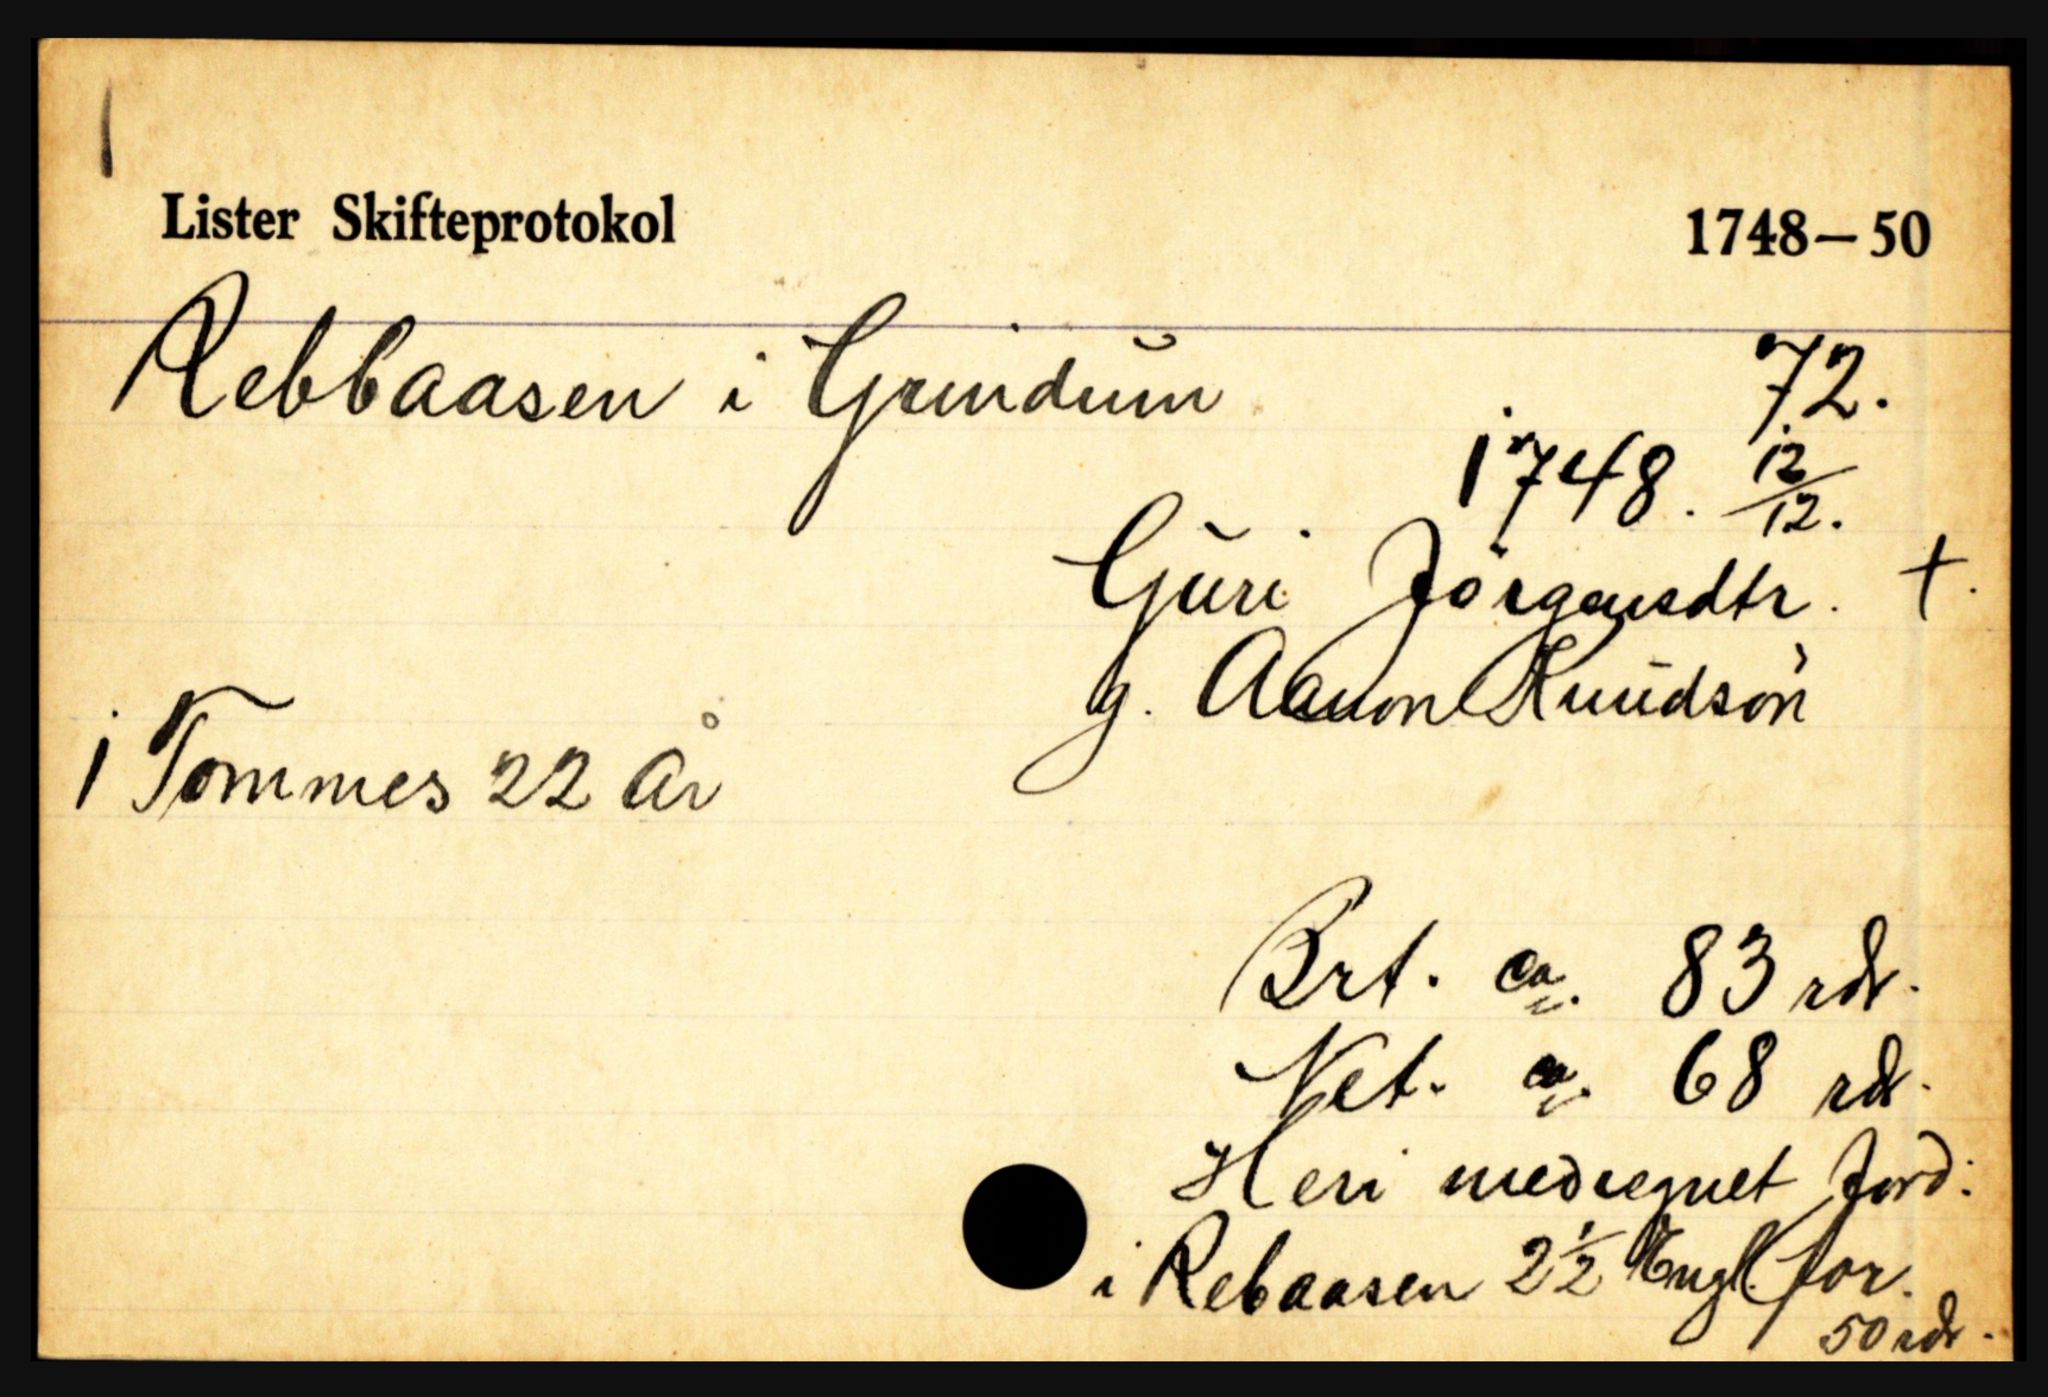 1
Lister Skifteprotokol 1748–50
Rebbaasen i Grindum 72.
1748. 12/12.
Guri Jörgensdtr. †.
g. Aanon Knudsön
1 Tommes 22 år
Brt. ca. 83 rdr.
Net. ca. 68 rdr.
Heri medregnet Jord:
i Rebaasen 2 1/2 Engl. for.
50 rdr.